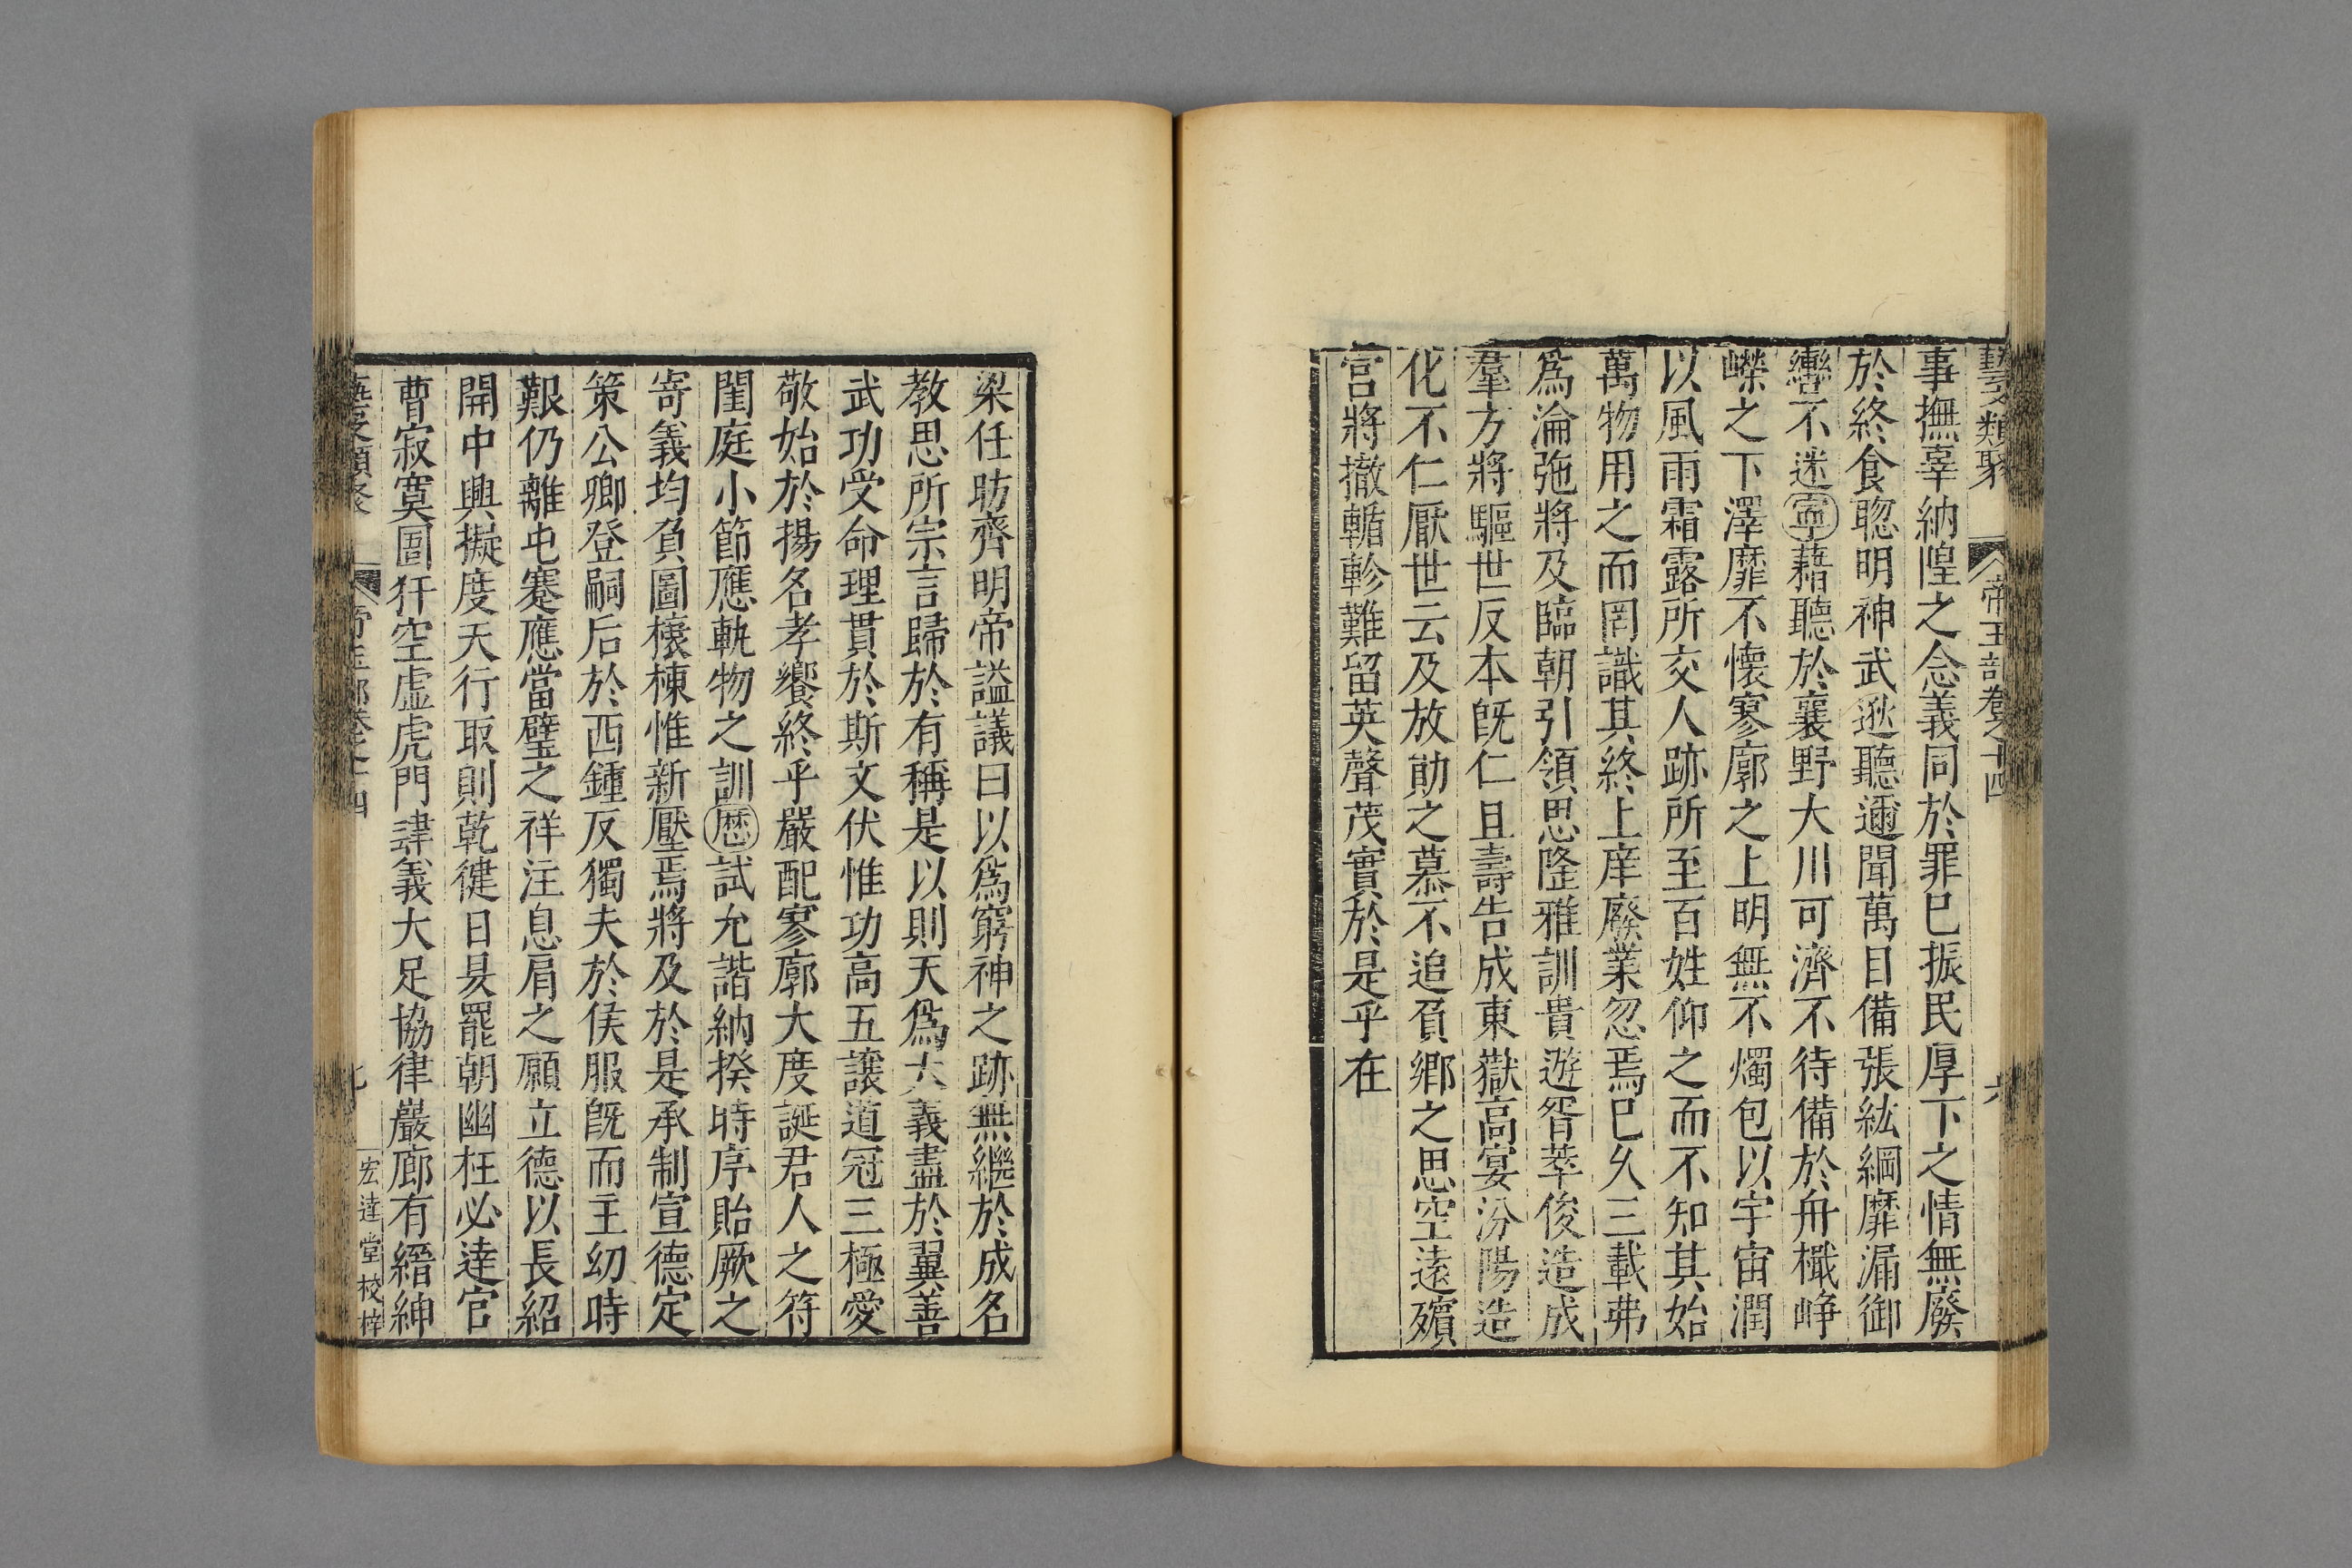 藝文類聚 帝王部卷之十四 六
事撫辜納隍之念義同於罪已振民厚下之情無廢
於終食聰明神武逖聽邇聞萬目備張紘綱靡漏御
轡不迷寧藉聽於襄野大川可濟不待備於舟檝崢
嶸之下澤靡不懷寥廓之上明無不燭包以宇宙潤
以風雨霜露所交人跡所至百姓仰之而不知其始
萬物用之而罔識其終上庠廢業忽焉已久三載弗
爲淪弛將及臨朝引領思隆雅訓貴遊胥萃俊造成
羣方將驅世反本旣仁且壽告成東嶽高宴汾陽造
化不仁厭世云及放勛之慕不追負鄉之思空遠殯
宮將撤輴軫難留英聲茂實於是乎在
梁任昉齊明帝謚議曰以爲窮神之跡無繼於成名
教思所宗言歸於有稱是以則天爲大義盡於翼善
武功受命理貫於斯文伏惟功高五讓道冠三極愛
敬始於揚名孝饗終乎嚴配寥廓大度誕君人之符
閨庭小節應軌物之訓歷試允諧納揆時序貽厥之
寄義均負圖榱棟惟新壓焉將及於是承制宣德定
策公卿登嗣后於西鍾反獨夫於侯服旣而主幼時
艱仍離屯蹇應當璧之祥注息肩之願立德以長紹
開中興擬度天行取則乾健日旲罷朝幽枉必達官
曹寂寞圄犴空虛虎門肄義大足協律巖廊有縉紳
藝文類聚 帝王部卷之十四 七 宏達堂校梓